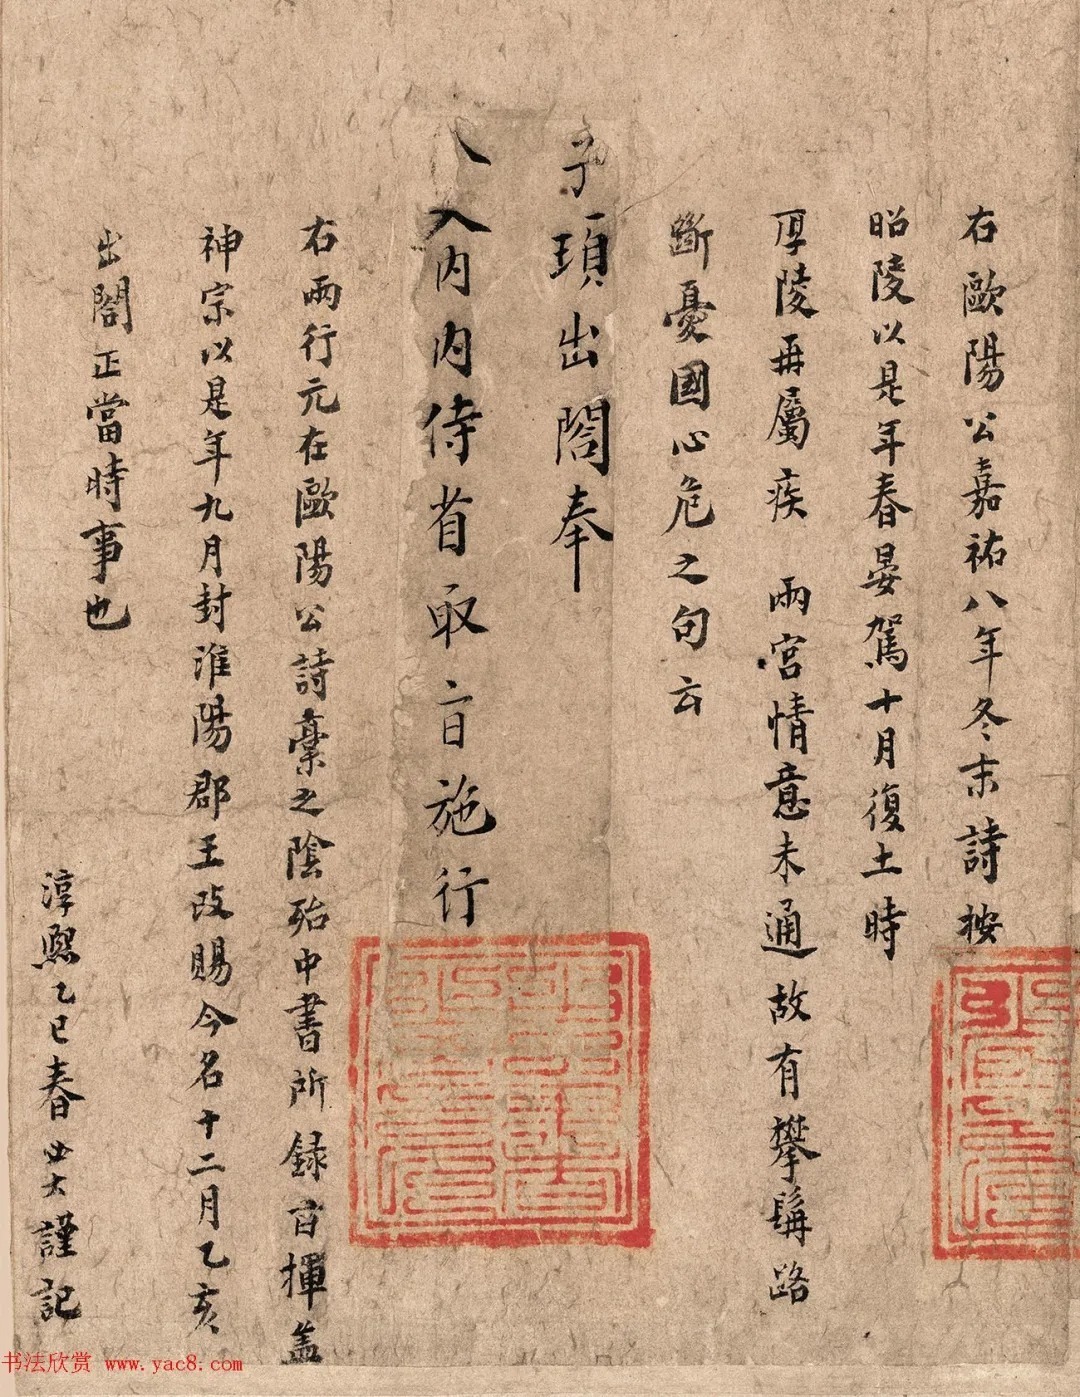 右歐陽公嘉祐八年冬末詩按
昭陵以是年春晏駕十月復土時
厚陵再屬疾 兩宮情意未通故有攀髯路
斷憂國心危之句云
子頊出閤奉
入內內侍省取旨施行
右兩行元在歐陽公詩稾之陰殆中書所錄旨揮蓋
神宗以是年九月封淮陽郡王改賜今名十二月乙亥
出閤正當時事也
淳熙乙巳春 必大謹記
书法欣赏 www.yac8.com